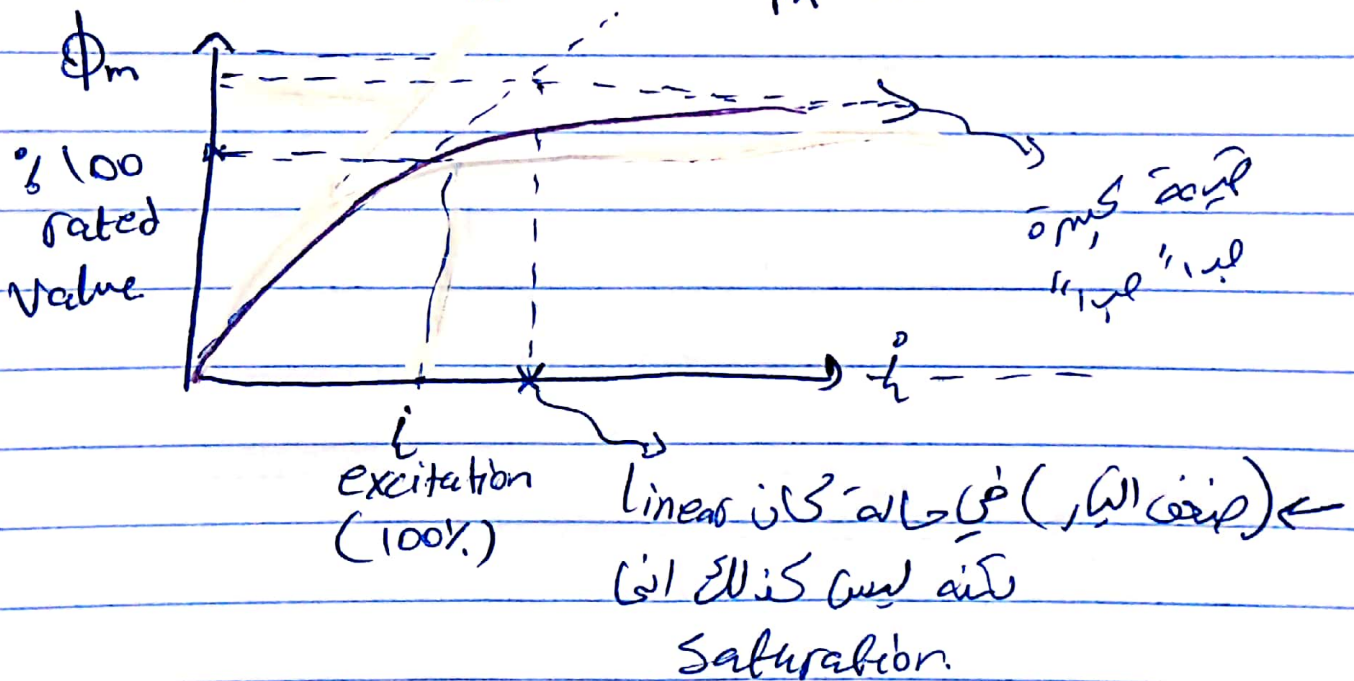 Φm
% 100
rated
value
قيمة كبيرة
جدا" جدا"
i
i
excitation
(100%)
← (ضعف التيار) في حالة كان linear
لكنه ليس كذلك
saturation.